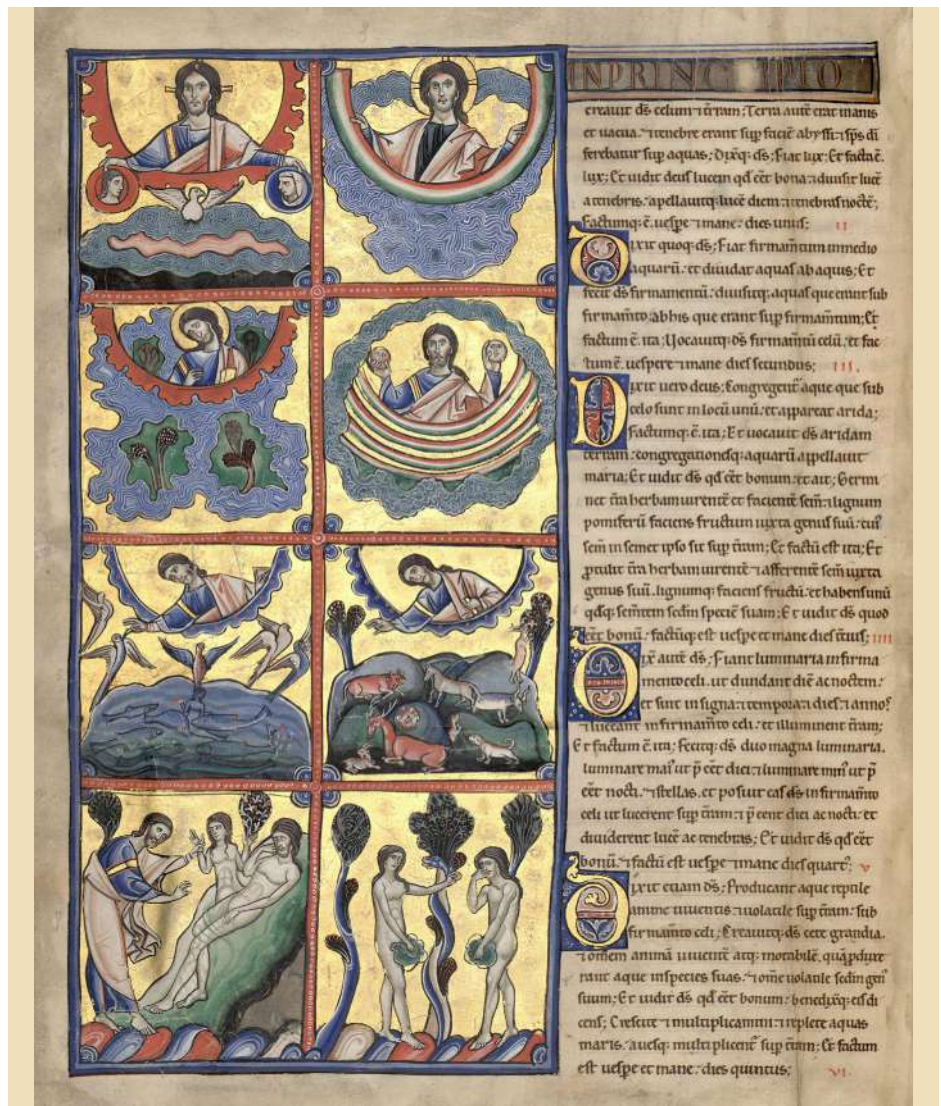 INPRINCIPIO
creauit ds̄ celum ⁊ t̄ram; Terra autē erat inanis
et uacua. ⁊ tenebre erant sup̄ faciē abyssi: ⁊ sp̄s dī
ferebatur sup̄ aquas; Dixitq; ds̄; Fiat lux; Et facta ē.
lux; Et uidit deus lucem qd̄ eēt bona: ⁊ diuisit lucē
a tenebris. apellauitq; lucē diem: ⁊ tenebras noctē;
Factumq; ē. uesp̄e ⁊ mane. dies unus; II
Dixit quoq; ds̄; Fiat firmam̄tum inmedio
aquarū. et diuidat aquas ab aquis; Et
fecit ds̄ firmamentū. diuisitq; aquas que erant sub
firmam̄to, ab his que erant sup̄ firmam̄tum; Et
factum ē. ita; Uocauitq; ds̄ firmam̄tū celū. et fac
tum ē. uespere ⁊ mane dies secundus; III.
Dixit uero deus; Congregent᷑ aque que sub
celo sunt in locū unū. et appareat arida;
Factumq; ē. ita; Et uocauit ds̄ aridam
terram. congregationesq; aquarū appellauit
maria; Et uidit ds̄ qd̄ eēt bonum. et ait; Germi
net t̄ra herbam uirentē et facientē sem̄. ⁊ lignum
pomiferū faciens fructum iuxta genus suū. cui᷒
sem̄ in semet ipso sit sup̄ t̄ram; Et factū est ita; Et
ꝓtulit t̄ra herbam uirentē ⁊ afferentē sem̄ iuxta
genus suū. lignumq; faciens fructū. et habens unū
qdq; sem̄tem sedm̄ speciē suam; Et uidit ds̄ quod
eēt bonū. factūq; est uesp̄e et mane dies t̄cius; IIII
Dix̄ autē ds̄; Fiant luminaria in firma
mento celi. ut diuidant diē ac noctem.
et sint in signa: ⁊ tempora: ⁊ dies: ⁊ annos.
⁊ luceant in firmam̄to celi. et illuminent t̄ram;
Et factum ē. ita; Fecitq; ds̄ duo magna luminaria.
luminare mai᷒ ut p̄ eēt diei: ⁊ luminare min᷒ ut p̄
eēt nocti. ⁊ stellas. et posuit eas ds̄ in firmam̄to
celi ut lucerent sup̄ t̄ram: ⁊ p̄ eent diei ac nocti. et
diuiderent lucē ac tenebras; Et uidit ds̄ qd̄ eēt
bonū. ⁊ factū est uesp̄e ⁊ mane dies quart᷒; V
Dixit etiam ds̄; Producant aque reptile
anime uiuentis ⁊ uolatile sup̄ t̄ram. sub
firmam̄to celi; Creauitq; ds̄ cete grandia.
⁊ omem̄ animā uiuentē atq; motabilē. quā ꝓduxe
rant aque in species suas. ⁊ om̄e uolatile sedm̄ gen᷒
suum; Et uidit ds̄ qd̄ eēt bonum. benedixitq; eis di
cens; Crescite ⁊ multiplicamini: ⁊ replete aquas
maris. auesq; multiplicent᷑ sup̄ t̄ram; Et factum
est uesp̄e et mane. dies quintus; VI.